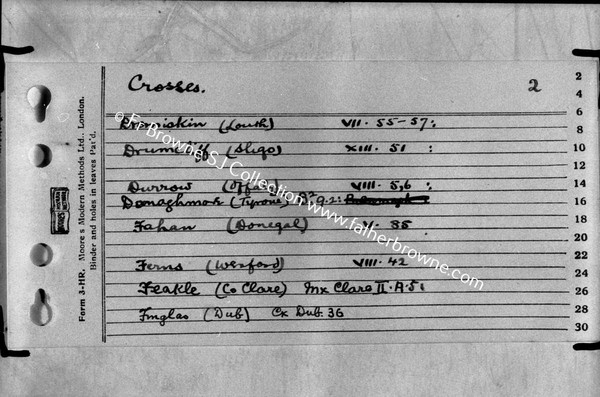 Crosses. 2
Dromiskin (Louth) VII. 55-57:
Drumcliff (Sligo) XIII. 51 :
Durrow (Offaly) VIII. 5,6 :
Donaghmore (Tyrone)
Fahan (Donegal) V. 85
Ferns (Wexford) VIII. 42
Feakle (Co Clare) Mx Clare II. A. 5:
Finglas (Dub) Cx Dub. 36
2
4
6
8
10
12
14
16
18
20
22
24
26
28
30
Form 3-HR. Moore's Modern Methods Ltd., London.
Binder and holes in leaves Pat'd.
© Fr Browne SJ Collection www.fatherbrowne.com